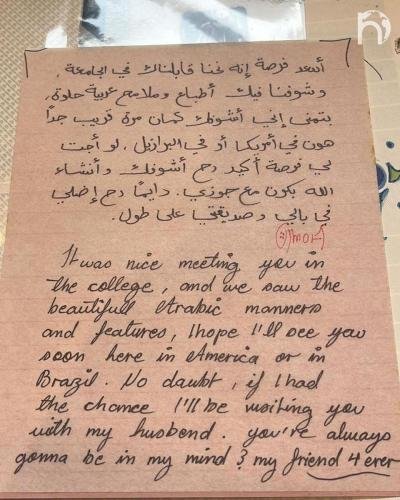 أسعد فرصة إنه نحنا قابلناك في الجامعة،
وشوفنا فيك أطباع وملامح عربية حلوة،
بتمنى إني أشوفك كمان مرة قريب جداً
هون في أمريكا أو في البرازيل، لو أجت
لي فرصة أكيد رح أشوفك وأنشاء
الله بكون مع جوزي. دايمًا رح إضلي
في بالي وصديقتي على طول.
It was nice meeting you in
the college, and we saw the
beautifull Arabic manners
and features, I hope I'll see you
soon here in America or in
Brazil. No doubt, if I had
the chance I'll be visiting you
with my husbond. you're always
gonna be in my mind & my friend 4 ever